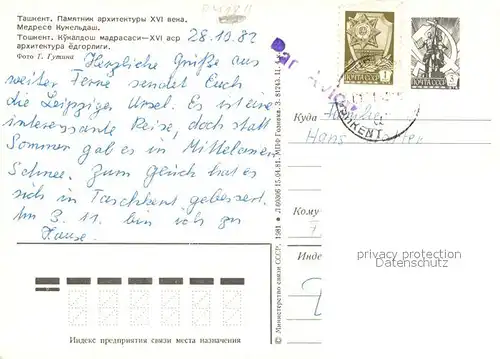 Ташкент. Памятник архитектуры XVI века.
Медресе Кукельдаш.
Тошкент. Кўкалдош мадрасаси—XVI аср
архитектура ёдгорлиги.
Фото Г. Гутина
28.10.82
Herzliche Grüße aus
weiter Ferne sendet Euch
die Leipziger Ursel. Es ist eine
interessante Reise, doch statt
Sommer gab es in Mittelasien
Schnee. Zum Glück hat es
sich in Taschkent gebessert.
Am 3. 11. bin ich zu
Hause.
Par Avion
ПОЧТА СССР
1
ПОЧТА СССР
Куда Familie
Hans
Кому
Инде
privacy protection
Datenschutz
© Министерство связи СССР, 1981
Л 60006 15.04.81. МПФ Гознака. З. 81243. Ц. 4 к.
Индекс предприятия связи места назначения